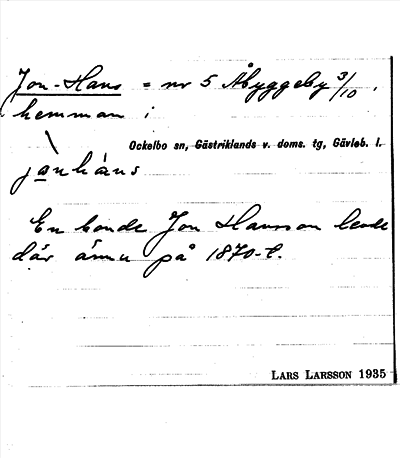 Jon-Hans = nr 5 Åbyggeby 3/10,
hemman i
Ockelbo sn, Gästriklands v. doms. tg, Gävleb. l.
janhans
En bonde Jon Hansson levde
där ännu på 1870-t.
LARS LARSSON 1935